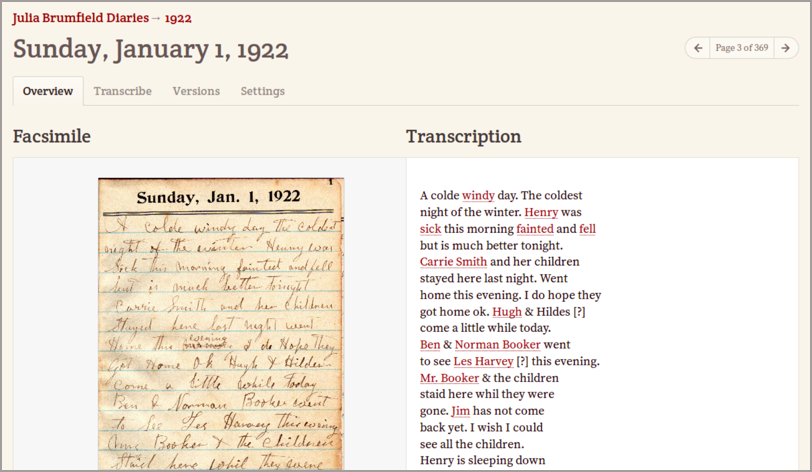 Julia Brumfield Diaries → 1922
Sunday, January 1, 1922
← Page 3 of 369 →
Overview Transcribe Versions Settings
Facsimile
1
Sunday, Jan. 1, 1922
A colde windy day the coldest
night of the winter Henry was
Sick this morning fainted and fell
but is much better tonight
Carrie Smith and her children
Stayed here last night went
evening
Home this I do Hope they
Got Home Ok Hugh & Hildes
Come a little while today
Ben & Norman Booker went
to See Les Harvey this evening
Booker & the children
Staid here whil they were
Transcription
A colde windy day. The coldest
night of the winter. Henry was
sick this morning fainted and fell
but is much better tonight.
Carrie Smith and her children
stayed here last night. Went
home this evening. I do hope they
got home ok. Hugh & Hildes [?]
come a little while today.
Ben & Norman Booker went
to see Les Harvey [?] this evening.
Mr. Booker & the children
staid here whil they were
gone. Jim has not come
back yet. I wish I could
see all the children.
Henry is sleeping down